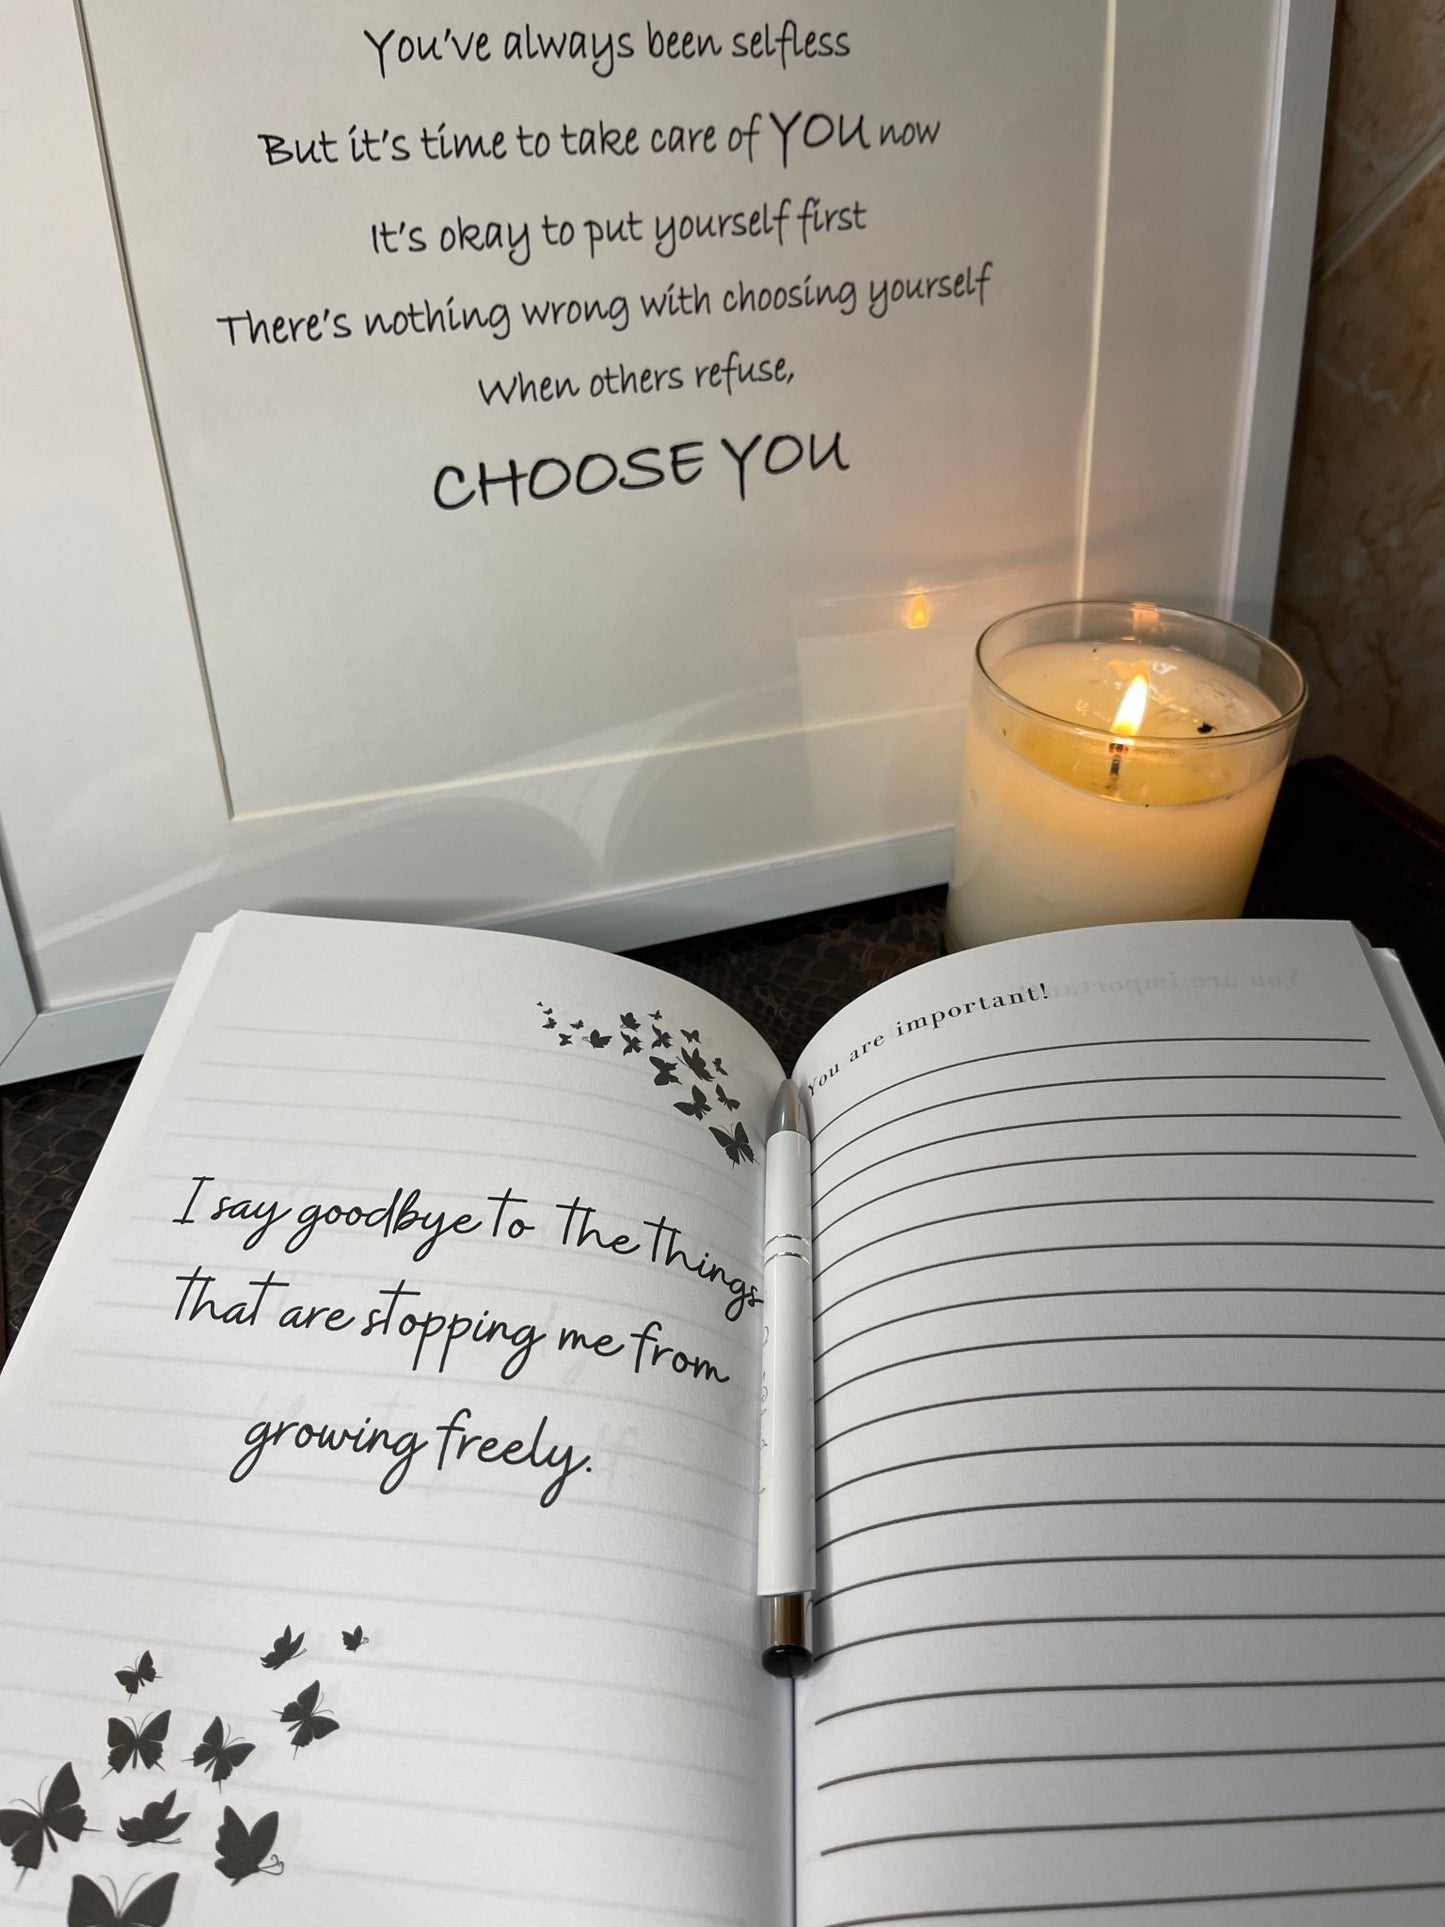 You've always been selfless
But it's time to take care of YOU now
It's okay to put yourself first
There's nothing wrong with choosing yourself
When others refuse,
CHOOSE YOU
I say goodbye to the things
that are stopping me from
growing freely.
You are important!